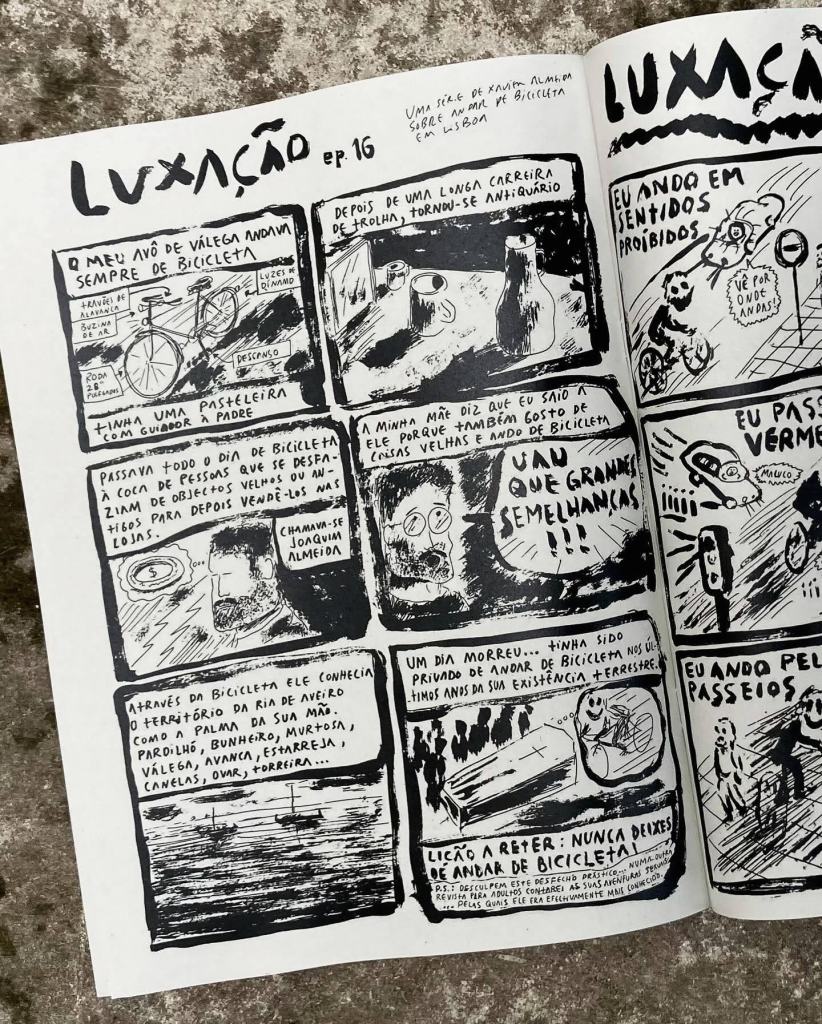 LUXAÇÃO ep. 16
UMA SÉRIE DE XAVIER ALMEIDA
SOBRE ANDAR DE BICICLETA
EM LISBOA
O MEU AVÔ DE VÁLEGA ANDAVA
SEMPRE DE BICICLETA
TRAVÕES DE
ALAVANCA
BUZINA
DE AR
RODA
28"
POLEGADAS
LUZES DE
DÍNAMO
DESCANSO
TINHA UMA PASTELEIRA
COM GUIADOR À PADRE
DEPOIS DE UMA LONGA CARREIRA
DE TROLHA, TORNOU-SE ANTIQUÁRIO
PASSAVA TODO O DIA DE BICICLETA
À COCA DE PESSOAS QUE SE DESFA-
ZIAM DE OBJECTOS VELHOS OU AN-
TIGOS PARA DEPOIS VENDÊ-LOS NAS
LOJAS.
$
CHAMAVA-SE
JOAQUIM
ALMEIDA
A MINHA MÃE DIZ QUE EU SAIO A
ELE PORQUE TAMBÉM GOSTO DE
COISAS VELHAS E ANDO DE BICICLETA
UAU
QUE GRANDES
SEMELHANÇAS
!!!
ATRAVÉS DA BICICLETA ELE CONHECIA
O TERRITÓRIO DA RIA DE AVEIRO
COMO A PALMA DA SUA MÃO.
PARDILHÓ, BUNHEIRO, MURTOSA,
VÁLEGA, AVANCA, ESTARREJA,
CANELAS, OVAR, TORREIRA...
UM DIA MORREU... TINHA SIDO
PRIVADO DE ANDAR DE BICICLETA NOS ÚL-
TIMOS ANOS DA SUA EXISTÊNCIA TERRESTRE.
LIÇÃO A RETER: NUNCA DEIXES
DE ANDAR DE BICICLETA!
P.S.: DESCULPEM ESTE DESFECHO DRÁSTICO... NUMA OUTRA
REVISTA PARA ADULTOS CONTAREI AS SUAS AVENTURAS SEXUAIS
... PELAS QUAIS ELE ERA EFECTIVAMENTE MAIS CONHECIDO.
LUXAÇÃ
EU ANDO EM
SENTIDOS
PROÍBIDOS
VÊ POR
ONDE
ANDAS!
EU PASS
VERME
MALUCO
EU ANDO PEL
PASSEIOS